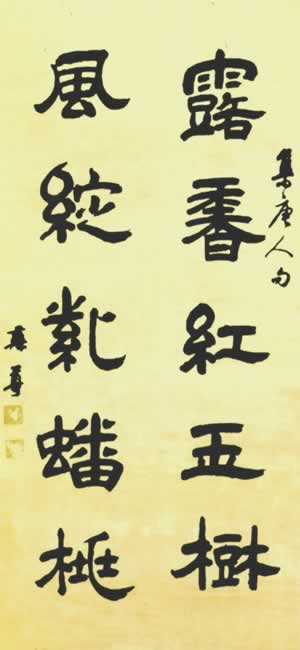 集唐人句
露香紅玉樹
風綻紫蟠桃